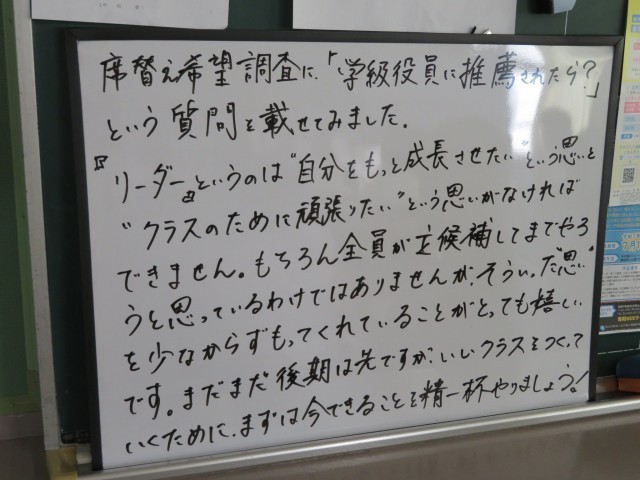 席替え希望調査に、「学級役員に推薦されたら?」
という質問を載せてみました。
『リーダー』というのは"自分をもっと成長させたい"という思いと
"クラスのために頑張りたい"という思いがなければ
できません。もちろん全員が立候補してまでやろ
うと思っているわけではありませんが、そういった"思い"
を少なからずもってくれていることがとっても嬉しい
です。まだまだ後期は先ですが、いいクラスをつくって
いくために、まずは今できることを精一杯やりましょう!